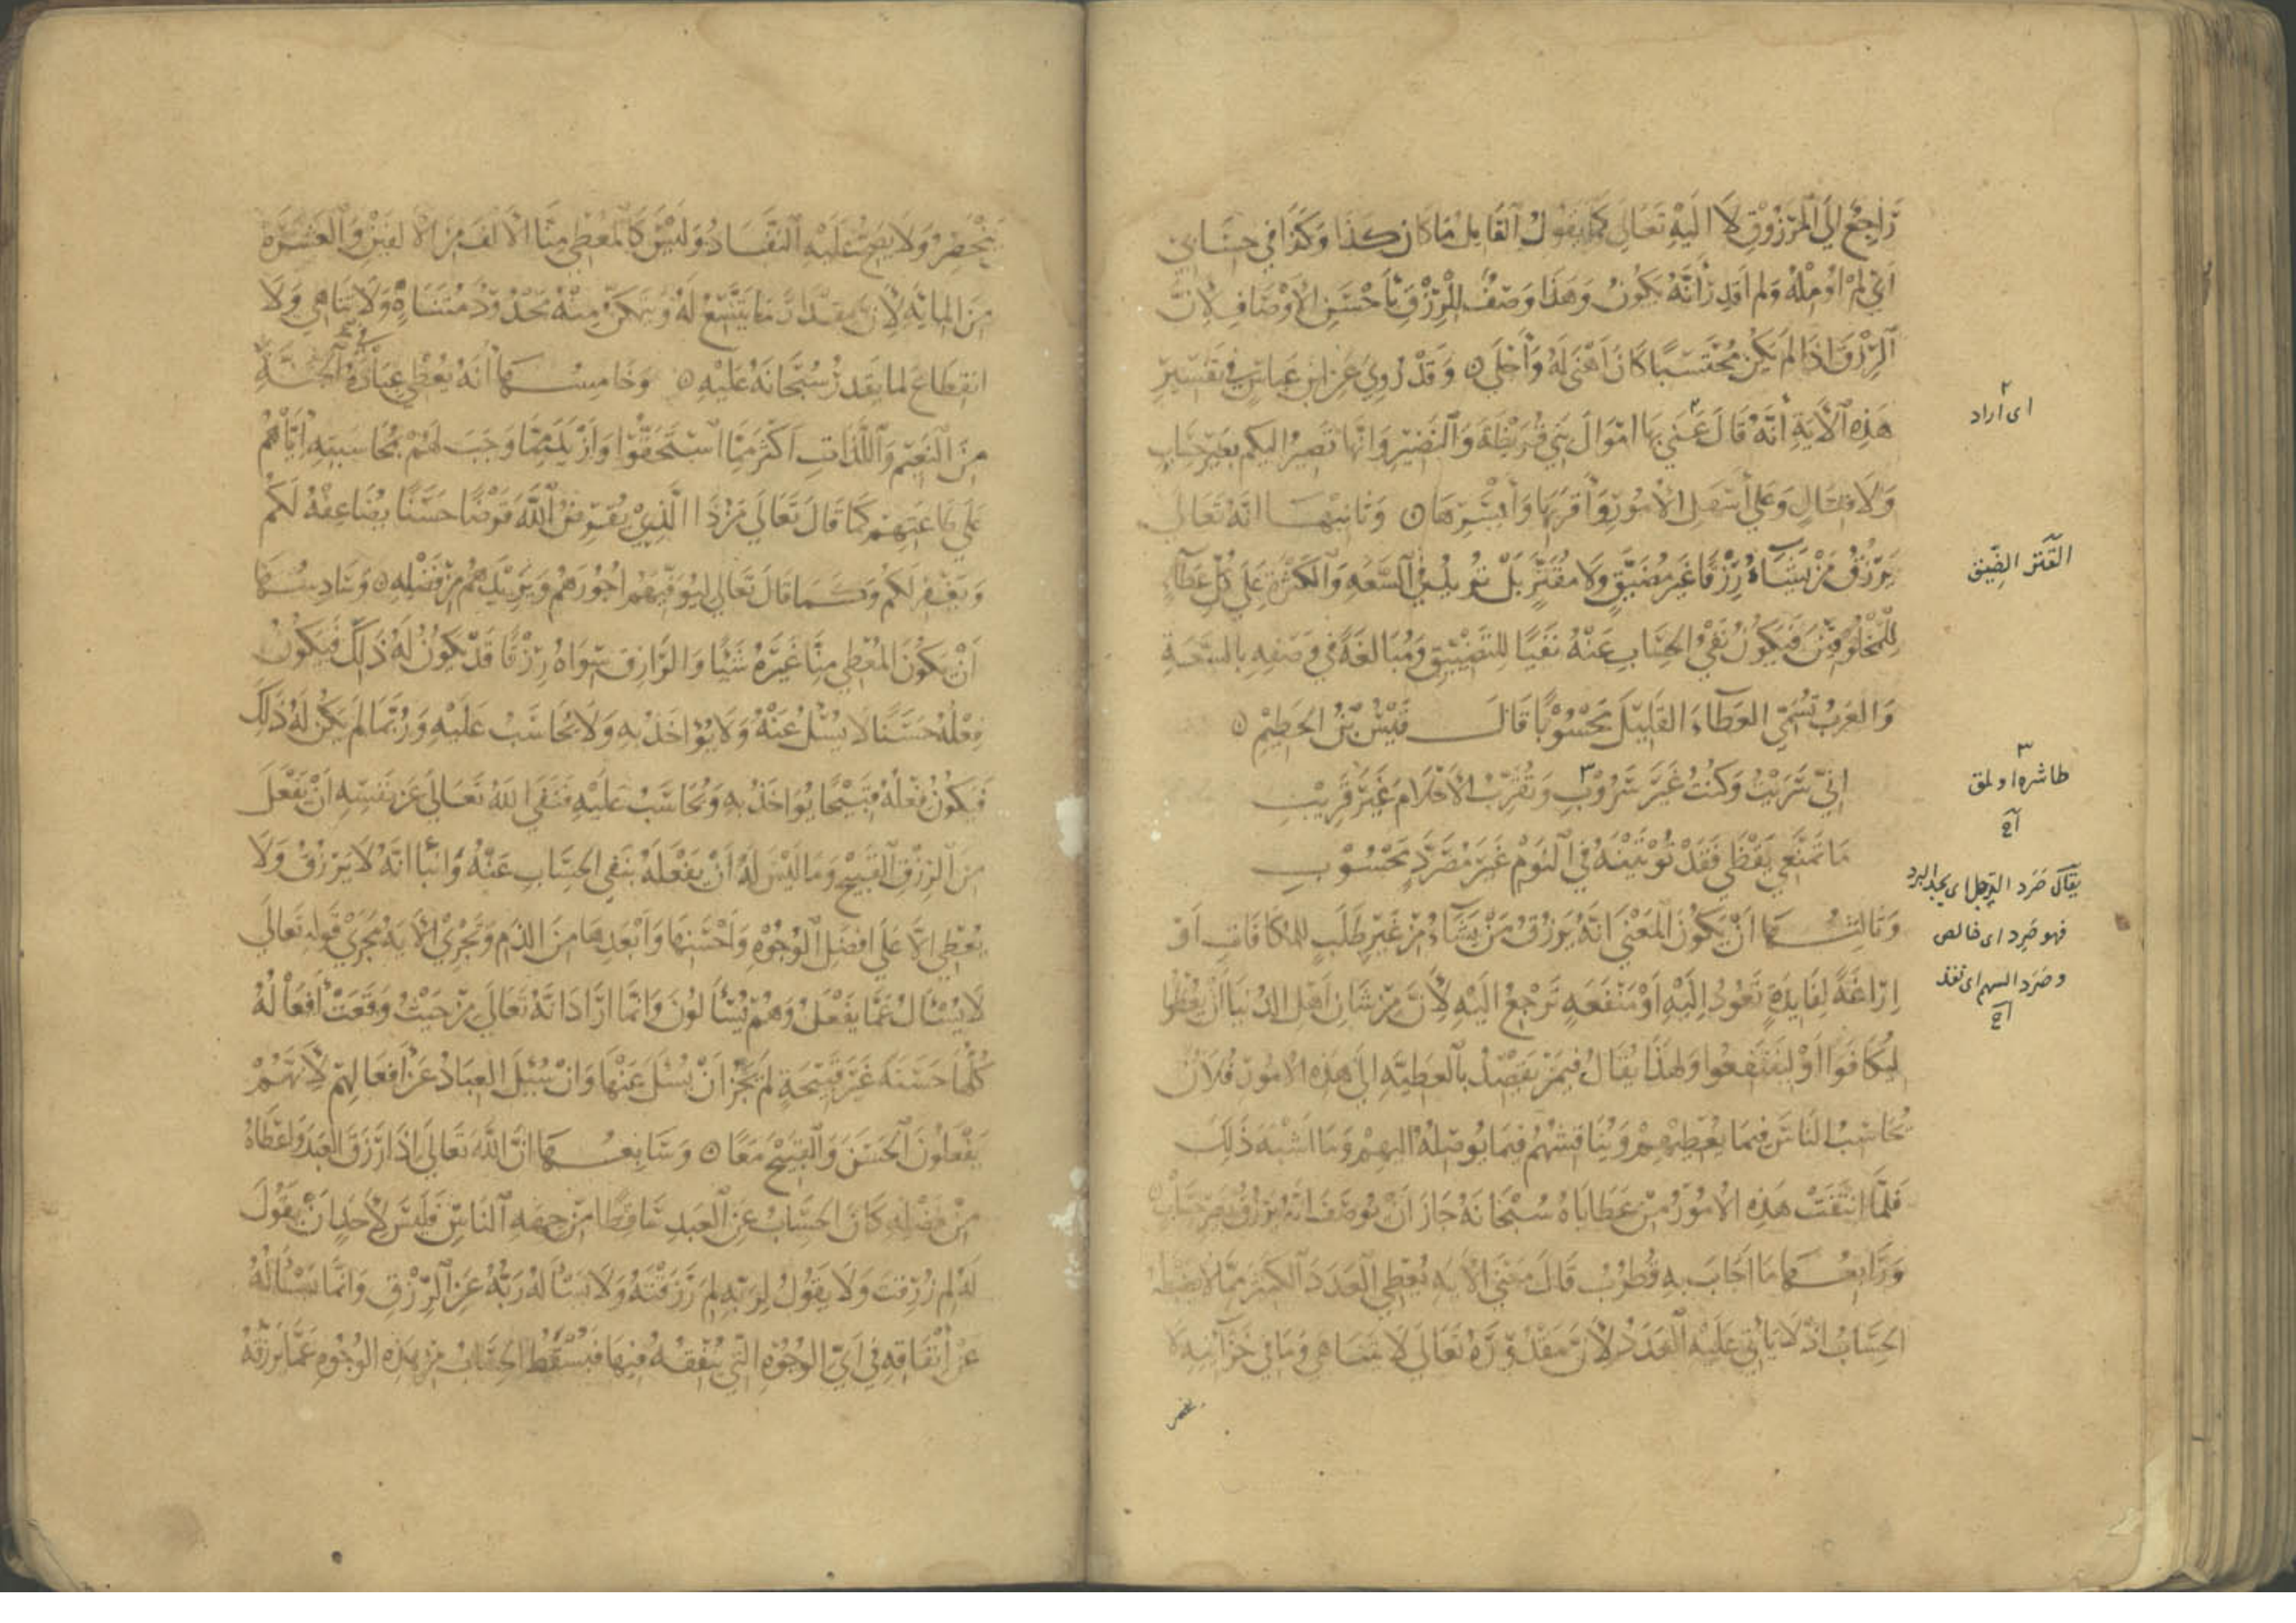 رَاجِعٌ اِلَى المَرْزُوْقِ لَا اليَهِ تَعَالى كَمَا يَقُولُ القَايِلُ مَا كَانَ كذَا وَكَذَا في حِسَابي
اَيْ لَمْ اُومّلْهُ وَلم اُقدِر أنَّهُ يَكُونُ وَهَذَا وَصْفٌ للرِّزْقِ بأَحْسَنِ الأوْصَافِ لأنَّ
الرِّزْقَ اِذَا لَم يَكُن مُحْتَسَبًا كَانَ اَهْنَى لَهُ وَأَحْلَى ۝ وَقَدْ رُوِيَ عَن ابنِ عَباسٍ في تَفْسِيْرِ
هَذِهِ الآيَةِ أنَّهُ قَالَ عَنَى بهَا امْوَالَ بَني قُرَيظَةَ وَالنَّضِيْرِ وَانها تَصِيرُ اليكم بغَيرِ حِسَابٍ
وَلَا قتَالٍ وَعَلى أسْهَلِ الأمُورِ وَأقرَبهَا وَأيْسَرِهَا ۝ وَثَانيْهَا انَّهُ تَعَالى
يَرْزُقُ مَنْ يَشَاءُ رِزْقًا غَيرَ مُضَيَّقٍ وَلَا مُقَتَّرٍ بَلْ يزيدُ في السَّعَةِ وَالكَثرَةِ عَلى كُلِّ عَطَاءٍ
لِلْمَخْلُوقِيْنَ فَيَكُونُ نَفْيُ الحِسَابِ عَنْهُ نَفْيًا لِلتَضْيِيْقِ وَمُبَالَغَةً في وَصْفِهِ بالسَّعَةِ
وَالعَرَبُ تُسَمّي العَطَاءَ القَلِيْلَ مَحْسُوْبًا قَالَ قَيْسُ بْنُ الخَطِيْمِ ۝
اَنّي سَرَيْتُ وَكُنْتُ غَيْرَ سَرُوْبِ وَتُقَرِّبُ الأَحْلَامُ غَيْرَ قَرِيْبِ
مَا تَمْنَعِي يَقْظَى فَقَدْ تُؤْتِيْنَهُ في النَّوْمِ غَيْرَ مُصَرَّدٍ مَحْسُوْبِ
وَثَالِثُهَا اَنْ يَكُونَ المَعْنَي اَنَّهُ يَرزُقُ مَنْ يَشَاءُ مِنْ غَيْرِ طَلَبٍ لِلمكَافَاةِ اَوْ
اِرَاغَةً لِفَايدَةٍ تَعُودُ اِلَيْهِ اَوْ مَنْفَعَةٍ تَرْجعُ اليَهِ لِأَنَّ مِنْ شَانِ اَهْلِ الدُنْيَا اَنْ يُعْطُوا
ليُكَافَوْا اَوْ ليَنْتَفِعُوا وَلهَذَا يُقَالُ فيمَنْ يَقْصِدُ بالعَطِيَّةِ الى هَذِهِ الأمُورِ فُلَانٌ
يُحَاسِبُ النَاسَ فيمَا يُعْطِيْهِمْ وَيُنَاقِشُهُمْ فيمَا يُوصِلُهُ اليهِمْ وَمَا اشْبَهَ ذَلِكَ
فَلَمَّا انْتَفَتْ هَذِهِ الأمُوْرُ مِنْ عَطَايَاهُ سُبْحَانَهُ جَازَ اَنْ يُوصَفَ انَّهُ يَرْزُقُ بغَيرِ حِسَابٍ ۝
وَرَابعُهَا مَا اَجَابَ بهِ قُطْرُبٌ قَالَ مَعْنَي الآيةِ يُعْطِي العَدَدَ الكثيرَ ممّا لا يضبطهُ
الحِسَابُ اذْ لَا يَأتي عَلَيْهِ العَدَدُ لأنَّ مَقْدُوْرَهُ تَعَالَى لَا يَتَنَاهَى وَمَا في خَزَائنِهِ لا
ينحصر
٢
اى اراد
القَتر الضِّيق
٣
طاشره اولمق
اح
يقال صَرَد الرجل اى يجد البرد
فهو صَرِد اى خالص
وصَرَد السهم اى نفذ
اح
يَنْحَصِرُ وَلَا يَصِحُّ عَلَيْهِ النَّفَادُ وَلَيْسَ كَالمُعْطِي مِنَّا الاَلفَ مِنَ الاَلفَيْنِ وَالعَشَرَةَ
مِنَ المِائَةِ لِأنَّ مِقْدَارَ مَا يَتَّسعُ لَهُ وَيَتَمَكَّنُ مِنْهُ مَحْدُوْدٌ مُتَنَاهٍ وَلَا تَنَاهِيَ وَلَا
انقِطَاعَ لمَا يَقْدِرُ سُبْحَانَهُ عَلَيْهِ ۝ وَخَامِسُهَا اَنَّهُ يُعْطي عِبَادَهُ في الجَنَّةِ
مِنَ النَّعِيْمِ وَاللَّذَاتِ اَكْثَرَ مِمَّا اسْتَحَقُّوا وَازْيَدَ مِمَّا وَجَبَ لَهُمْ بمُحَاسَبَتِهِ اِيَّاهُم
عَلَى طَاعَتِهِمْ كَمَا قَالَ تَعَالَى مَنْ ذَا الَّذِيْ يُقْرِضُ اللَّهَ قَرْضًا حَسَنًا يُضَاعِفْهُ لَكُمْ
وَيَغْفِر لَكُم وَكَمَا قَالَ تَعَالى ليُوَفّيَهُمْ اُجُورَهُمْ وَيَزِيْدَهُمْ مِنْ فَضْلِهِ ۝ وَسَادِسُهَا
اَنْ يَكُوْنَ المُعْطي مِنَّا غَيْرَهُ شَيْئًا وَالرَّازِقُ سِوَاهُ رِزْقًا قَدْ يَكُونُ لَهُ ذَلِكَ فَيَكُونُ
فِعْلُهُ حَسَنًا لَا يُسْئَلُ عَنْهُ وَلَا يُؤَاخَذُ بهِ وَلَا يُحَاسَبُ عَلَيْهِ وَرُبَّمَا لَم يَكُنْ لَهُ ذَلِكَ
فَيَكُونُ فِعْلُهُ قَبِيْحًا يُوَاخَذُ بهِ وَيُحَاسَبُ عَلَيْهِ فَنَفَى اللهُ تَعَالىَ عَنْ نَفْسِهِ اَنْ يَفْعَلَ
مِنَ الرِزْقِ القَبِيْحَ وَمَا لَيْسَ لَهُ اَنْ يَفْعَلَهُ بنَفْيِ الحِسَابِ عَنْهُ وَانْبَأ انَّهُ لَا يَرْزُقُ وَلَا
يُعْطِي الّا عَلَى اَفْضَلِ الوُجُوْهِ وَاَحْسَنِهَا وَاَبْعَدِهَا مِنَ الذَمِ وَتَجْرِيْ الآيَةُ مَجْرَى قَولِهِ تَعَالَى
لَا يُسْأَلُ عَمَّا يَفْعَلُ وَهُمْ يُسْأَلُونَ وَانَّمَا ارَادَ انَّهُ تَعَالَى مِنْ حَيْثُ وَقَعَتْ اَفْعَالُهُ
كُلُّهَا حَسَنَةً غَيْرَ قَبيْحَةٍ لَم يَجُزْ اَنْ يُسْئَلَ عَنْهَا وَانْ سُئِلَ العِبَادُ عَنْ اَفْعَالِهِمْ لِأَنَّهُمْ
يَفْعَلُونَ الحَسَنَ وَالقَبيْحَ مَعًا ۝ وَسَابعُهَا انَّ اللَّهَ تَعَالى اذَا رَزَقَ العَبْدَ وَاعْطَاهُ
مِنْ فَضْلِهِ كَانَ الحِسَابُ عَنِ العَبدِ سَاقِطًا مِنْ جِهَةِ النَاسِ فَلَيْسَ لِأحَدٍ اَنْ يَقُوْلَ
لَهُ لِم رُزِقتَ وَلَا يَقُولُ لِرَبّهِ لِمَ رَزَقْتَهُ وَلَا يَسْأَلُهُ رَبُّهُ عَنِ الرِّزْقِ وَانَّمَا يَسْأَلُهُ
عَنْ اِنْفَاقِهِ في اَيِّ الوُجُوْهِ الّتي يُنْفِقُهُ فيهَا فَيَسْقُطُ الحِسَابُ مِنْ هَذِهِ الوُجُوهِ عَمَّا يَرْزُقُهُ